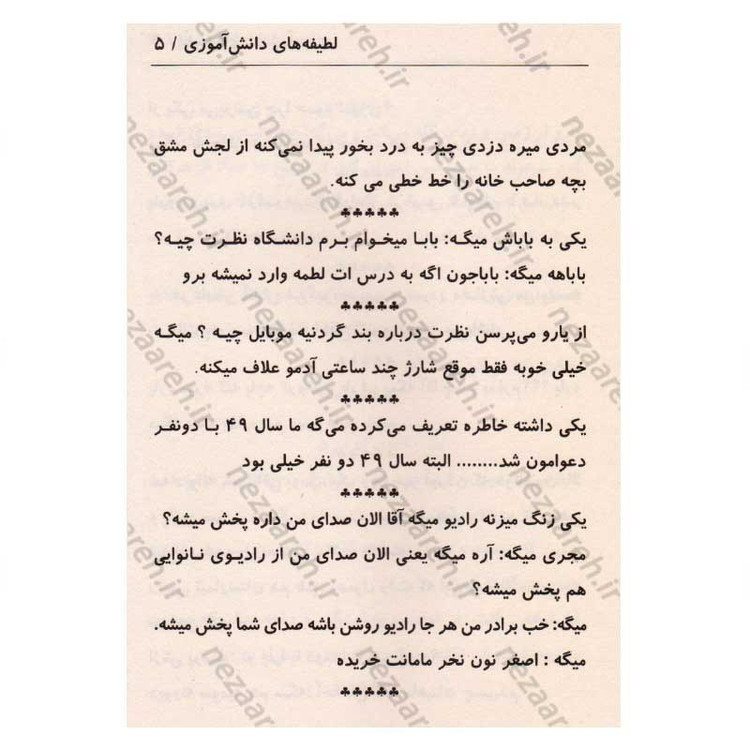 لطیفه‌های دانش‌آموزی / ۵
مردی میره دزدی چیز به درد بخور پیدا نمی‌کنه از لجش مشق
بچه صاحب خانه را خط خطی می کنه.
♣♣♣♣♣
یکی به باباش میگه: بابا میخوام برم دانشگاه نظرت چیه؟
باباهه میگه: باباجون اگه به درس ات لطمه وارد نمیشه برو
♣♣♣♣♣
از یارو می‌پرسن نظرت درباره بند گردنیه موبایل چیه ؟ میگه
خیلی خوبه فقط موقع شارژ چند ساعتی آدمو علاف میکنه.
♣♣♣♣♣
یکی داشته خاطره تعریف می‌کرده می‌گه ما سال ۴۹ با دونفر
دعوامون شد........ البته سال ۴۹ دو نفر خیلی بود
♣♣♣♣♣
یکی زنگ میزنه رادیو میگه آقا الان صدای من داره پخش میشه؟
مجری میگه: آره میگه یعنی الان صدای من از رادیوی نانوایی
هم پخش میشه؟
میگه: خب برادر من هر جا رادیو روشن باشه صدای شما پخش میشه.
میگه : اصغر نون نخر مامانت خریده
♣♣♣♣♣
nezaareh.ir